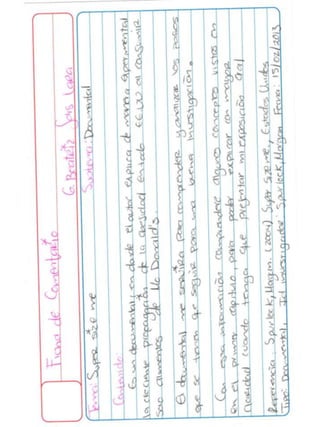 Ficha de Comentario
G. Beatriz Solis Lara
Tema: Super size me Subtema: Documental
Contenido:
Es un documental en donde el autor explica de manera experimental
la creciente propagación de la obesidad en todo EE.UU al consumir
sólo alimentos de Mc Donald's.
El documental me servira para comprender y analizar los pasos
que se tienen que seguir para una buena investigación.
Con esta información comprendere algunos conceptos vistos en
en el primer capitulo, para poder explicar con mayor
claridad cuando tenga que presentar mi exposición oral
Referencia: Spurlock, Morgan. (2004) Super Size me, Estados Unidos
Tipo: Documental, Id investigador: Spurlock, Morgan Fecha: 15/02/2013